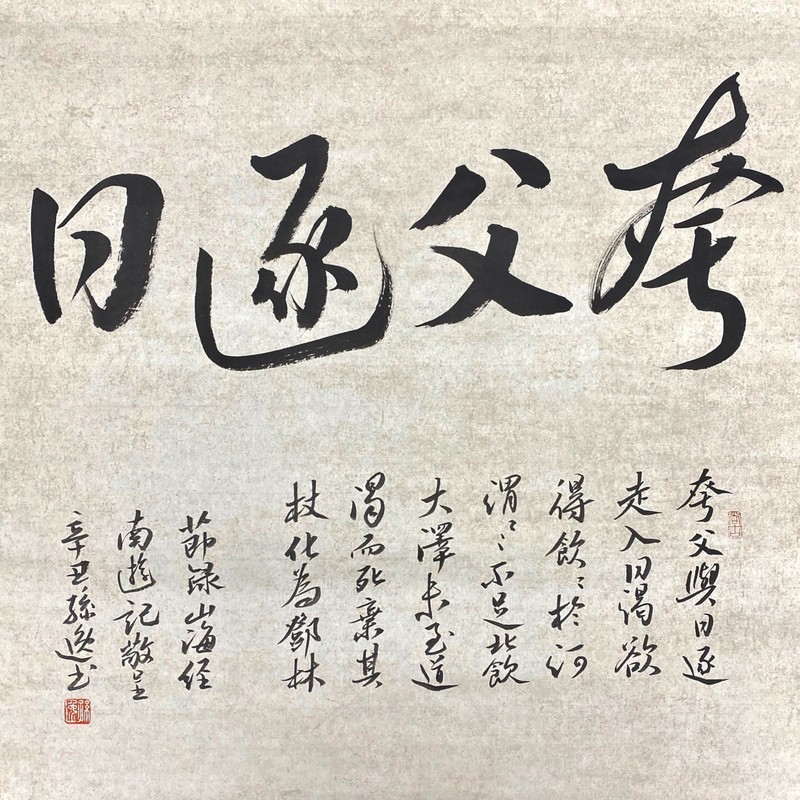 夸父逐日
夸父與日逐
走入日渴欲
得飲飲於河
渭渭不足北飲
大澤未至道
渴而死棄其
杖化為鄧林
節錄山海經
南遊記敬呈
辛丑孫逸書